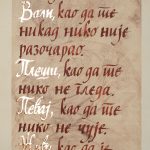 Воли, као да те
никад нико није
разочарао.
Плеши, као да те
нико не гледа.
Певај, као да те
нико не чује.
као да је